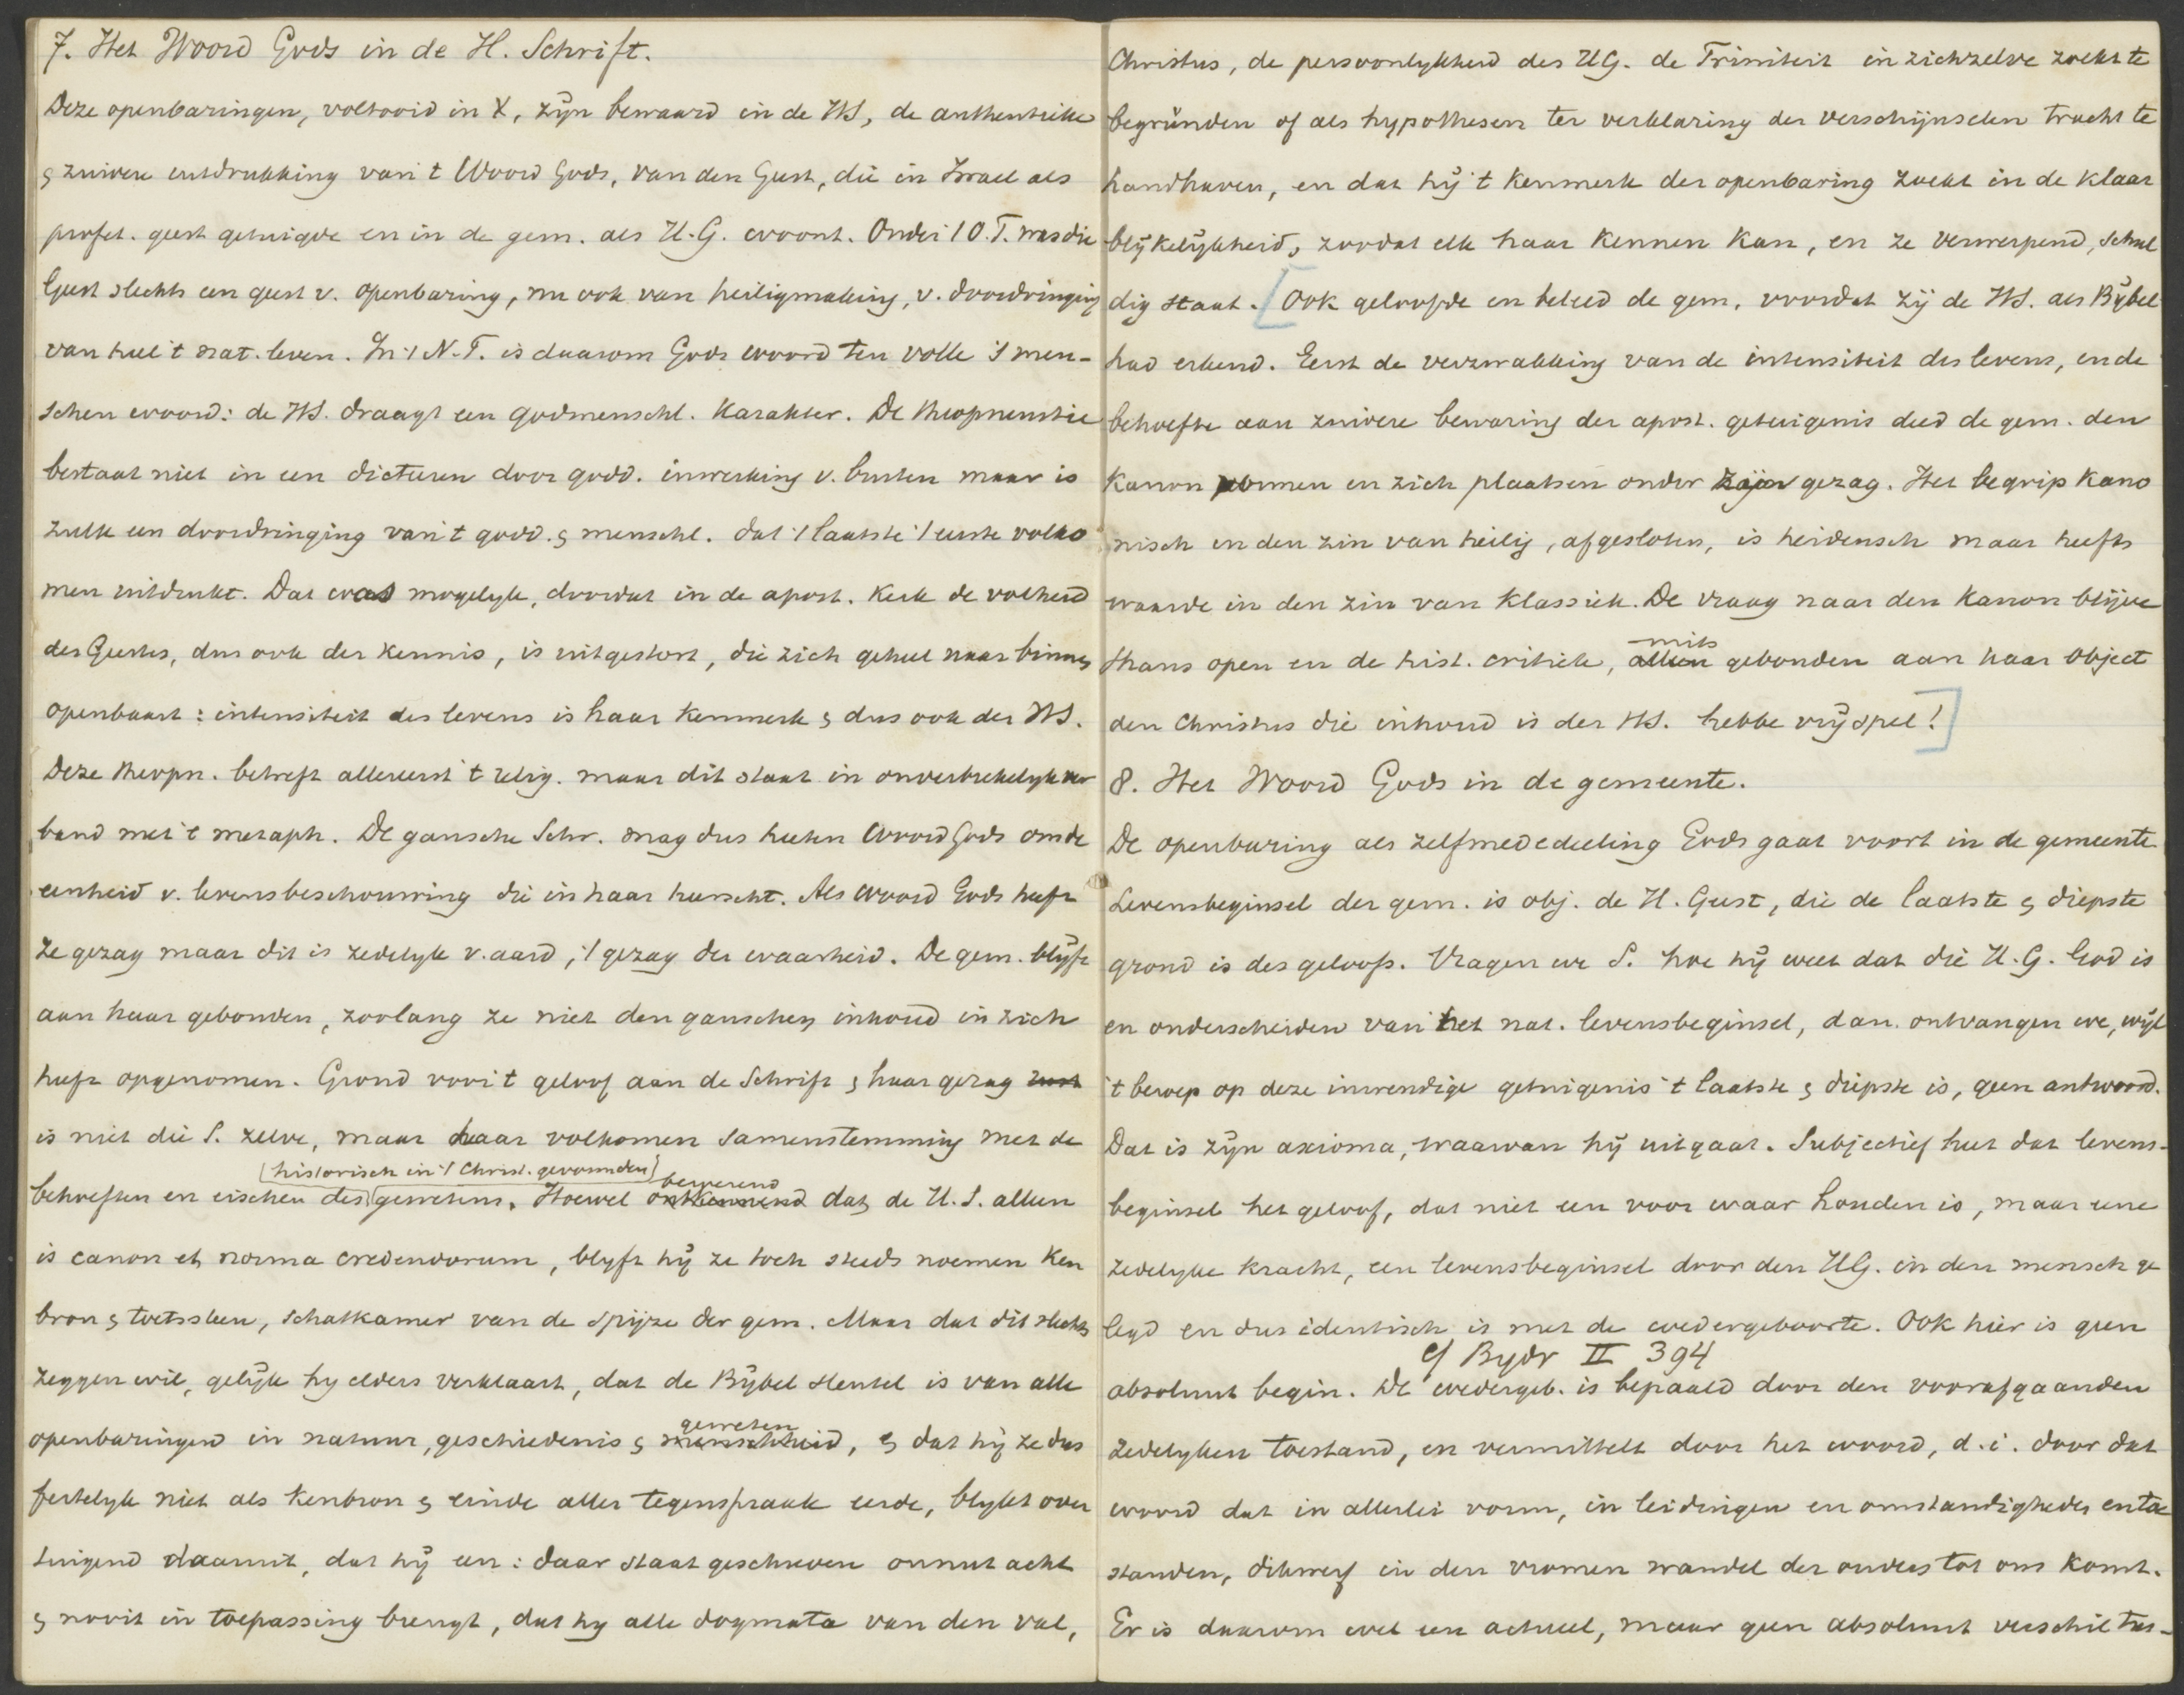 7. Het Woord Gods in de H. Schrift.
Deze openbaringen, voltooid in X, zijn bewaard in de HS, de authentieke
& zuivere uitdrukking van 't Woord Gods, van den Geest, die in Israel als
profet. geest getuigde en in de gem. als H.G. woont. Onder 't O.T. was die
Geest slechts een geest v. openbaring, nu ook van heiligmaking, v. doordringing
van heel 't nat. leven. In 't N.T. is daarom Gods woord ten volle 's men-
schen woord: de HS. draagt een godmenschl. karakter. De theopneustie
bestaat niet in een dicteren door godd. inwerking v. buiten maar is
zulk een doordringing van 't godd. & menschl. dat 't laatste 't eerste volko
men uitdrukt. Dat was mogelyk, doordat in de apost. Kerk de volheid
des Geestes, dus ook der kennis, is uitgestort, die zich geheel naar binnen
openbaart: intensiteit des levens is haar kenmerk & dus ook der HS.
Deze theopn. betreft allereerst 't relig. maar dit staat in onverbrekelyk ver
band met 't metaph. De gansche Schr. mag dus heeten Woord Gods om de
eenheid v. levensbeschouwing die in haar heerscht. Als woord Gods heeft
ze gezag maar dit is zedelyk v. aard, 't gezag der waarheid. De gem. blijft
aan haar gebonden, zoolang ze niet den ganschen inhoud in zich
heeft opgenomen. Grond voor 't geloof aan de Schrift & haar gezag rust
is niet die S. zelve, maar haar volkomen samenstemming met de
(historisch in 't Christ. gevormden)
behoeften en eischen des gewetens. Hoewel ontkennend beweerend dat de H.S. alleen
is canon et norma credendorum, blyft hij ze toch steeds noemen Ken
bron & toetssteen, schatkamer van de spijze der gem. Maar dat dit slechts
zeggen wil, gelijk hy elders verklaart, dat de Bijbel sleutel is van alle
openbaringen in natuur, geschiedenis & menschheid geweten, & dat hij ze dus
feitelyk niet als Kenbron & einde aller tegenspraak eerde, blykt over
tuigend daaruit, dat hij een: daar staat geschreven onnut acht
& nooit in toepassing brengt, dat hy alle dogmata van den val,
Christus, de persoonlykheid des HG. de Triniteit in zichzelve zoekt te
begründen of als hypothesen ter verklaring der verschijnselen tracht te
handhaven, en dat hij 't kenmerk der openbaring zoekt in de klaar
blijkelijkheid, zoodat elk haar kennen kan, en ze verwerpend, schul
dig staat. [Ook geloofde en beleed de gem. voordat zij de HS. als Bijbel
had erkend. Eerst de verzwakking van de intensiteit des levens, en de
behoefte aan zuivere bewaring der apost. getuigenis deed de gem. den
Kanon vormen en zich plaatsen onder zijn gezag. Het begrip Kano
nisch in den zin van heilig, afgesloten, is heidensch maar heeft
waarde in den zin van Klassiek. De vraag naar den Kanon blijve
thans open en de hist. critiek, alleen mits gebonden aan haar object
den Christus die inhoud is der HS. hebbe vrij spel!]
8. Het Woord Gods in de gemeente.
De openbaring als zelfmededeeling Gods gaat voort in de gemeente
Levensbeginsel der gem. is obj. de H. Geest, die de laatste & diepste
grond is des geloofs. Vragen we S. hoe hij weet dat die H.G. God is
en onderscheiden van het nat. levensbeginsel, dan ontvangen we, wijl
't beroep op deze inwendige getuigenis 't laatste & diepste is, geen antwoord.
Dat is zijn axioma, waarvan hij uitgaat. Subjectief heet dat levens-
beginsel het geloof, dat niet een voor waar houden is, maar eene
zedelyke kracht, een levensbeginsel door den HG. in den mensch ge
legd en dus identisch is met de wedergeboorte. Ook hier is geen
cf Bydr II 394
absoluut begin. De wedergeb. is bepaald door den voorafgaanden
zedelyken toestand, en vermittelt door het woord, d.i. door dat
woord dat in allerlei vorm, in leidingen en omstandigheden en toe
standen, dikwerf in den vromen wandel der ouders tot ons komt.
Er is daarom wel een actueel, maar geen absoluut verschil tus-